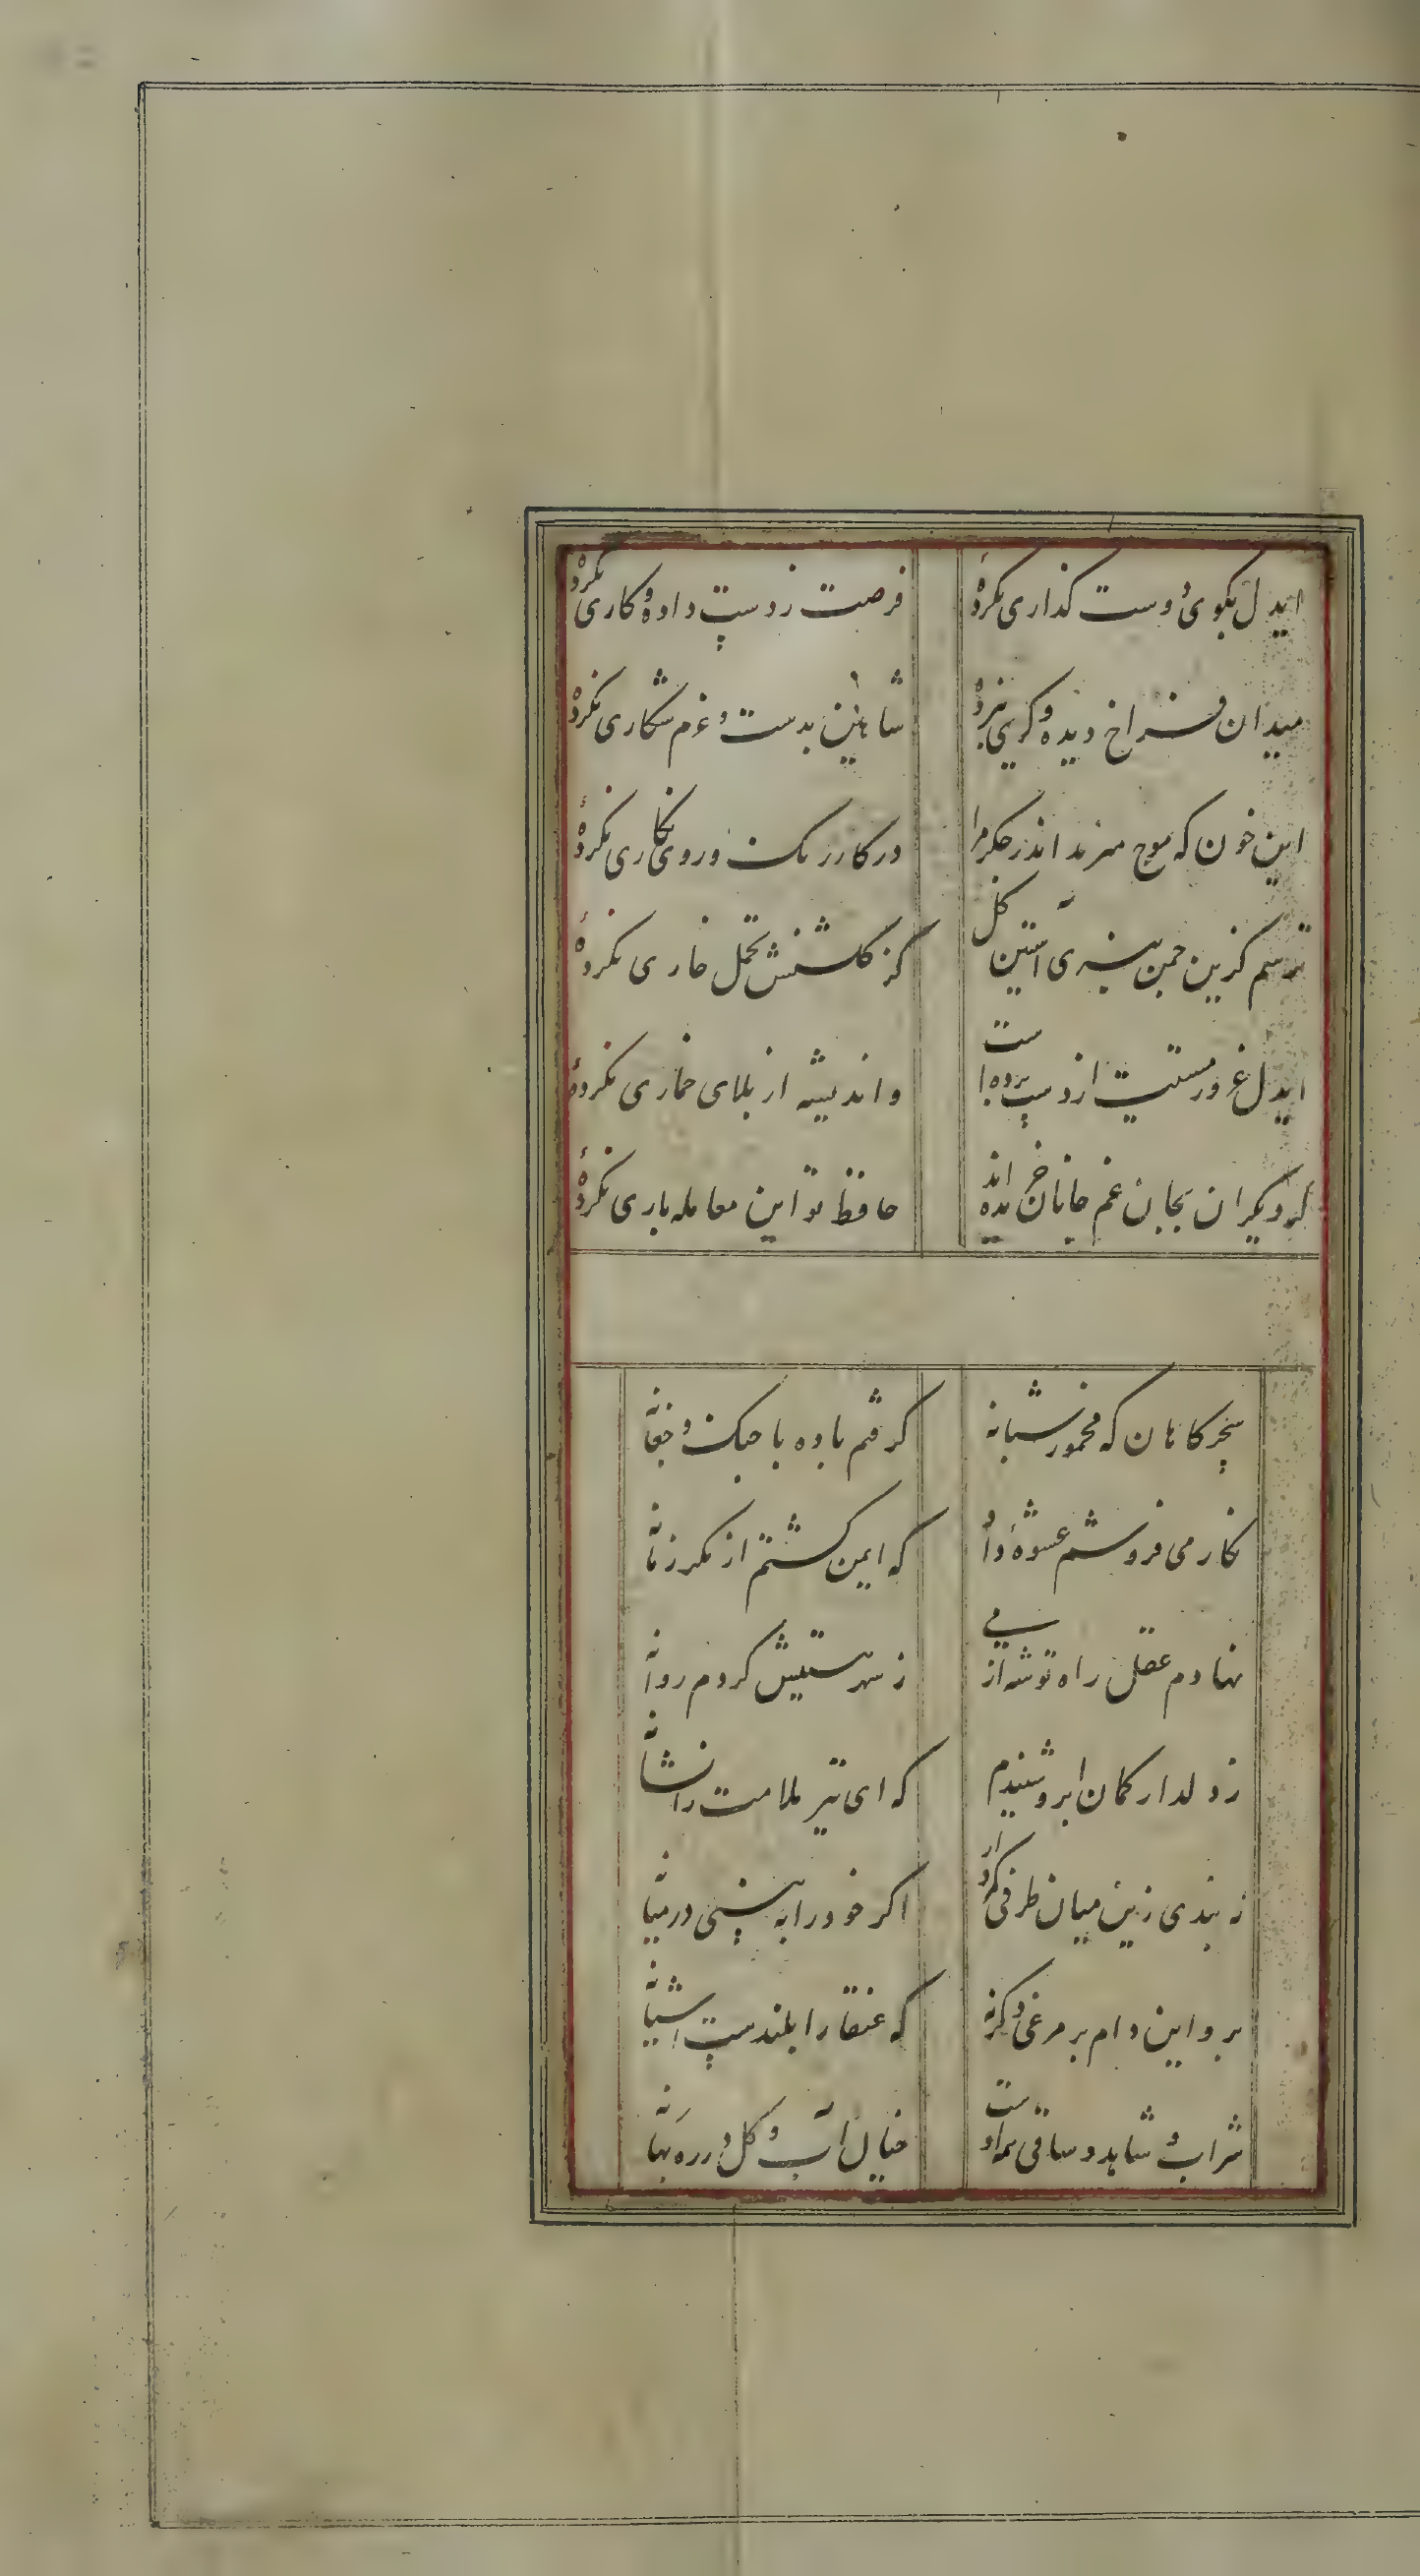 ایدل بکوی دوست کذاری نکردۀ فرصت ز دست داده و کاری نکردۀ
میدان فراخ دیده و کویی نبردۀ شاهین بدست و عزم شکاری نکردۀ
این خون که موج میزند اندر جکر ترا در کار رنک و روی نکاری نکردۀ
ترسم کزین چمن نبری آستین کل کز کلشنش تحمل خاری نکردۀ
ایدل غرور مستیت از دست برده است و اندیشه از بلای خماری نکردۀ
کر دیکران بجان غم جانان خریده اند حافظ تو این معامله باری نکردۀ
سحرکاهان که مخمور شبانه کرفتم باده با چنک و چغانه
نکار می فروشم عشوۀ داد که ایمن کشتم از مکر زمانه
نهادم عقل را ره توشه از می ز شهر هستیش کردم روانه
ز دلدار کمان ابرو شنیدم که ای تیر ملامت را نشانه
نه بندی زین میان طرفی کمروار اکر خود را به بینی در میانه
برو این دام بر مرغی دکر نه که عنقا را بلندست آشیانه
شراب و شاهد و ساقی همه اوست خیال آب و کل در ره بهانه